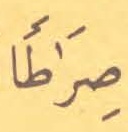 صِرَاطًا